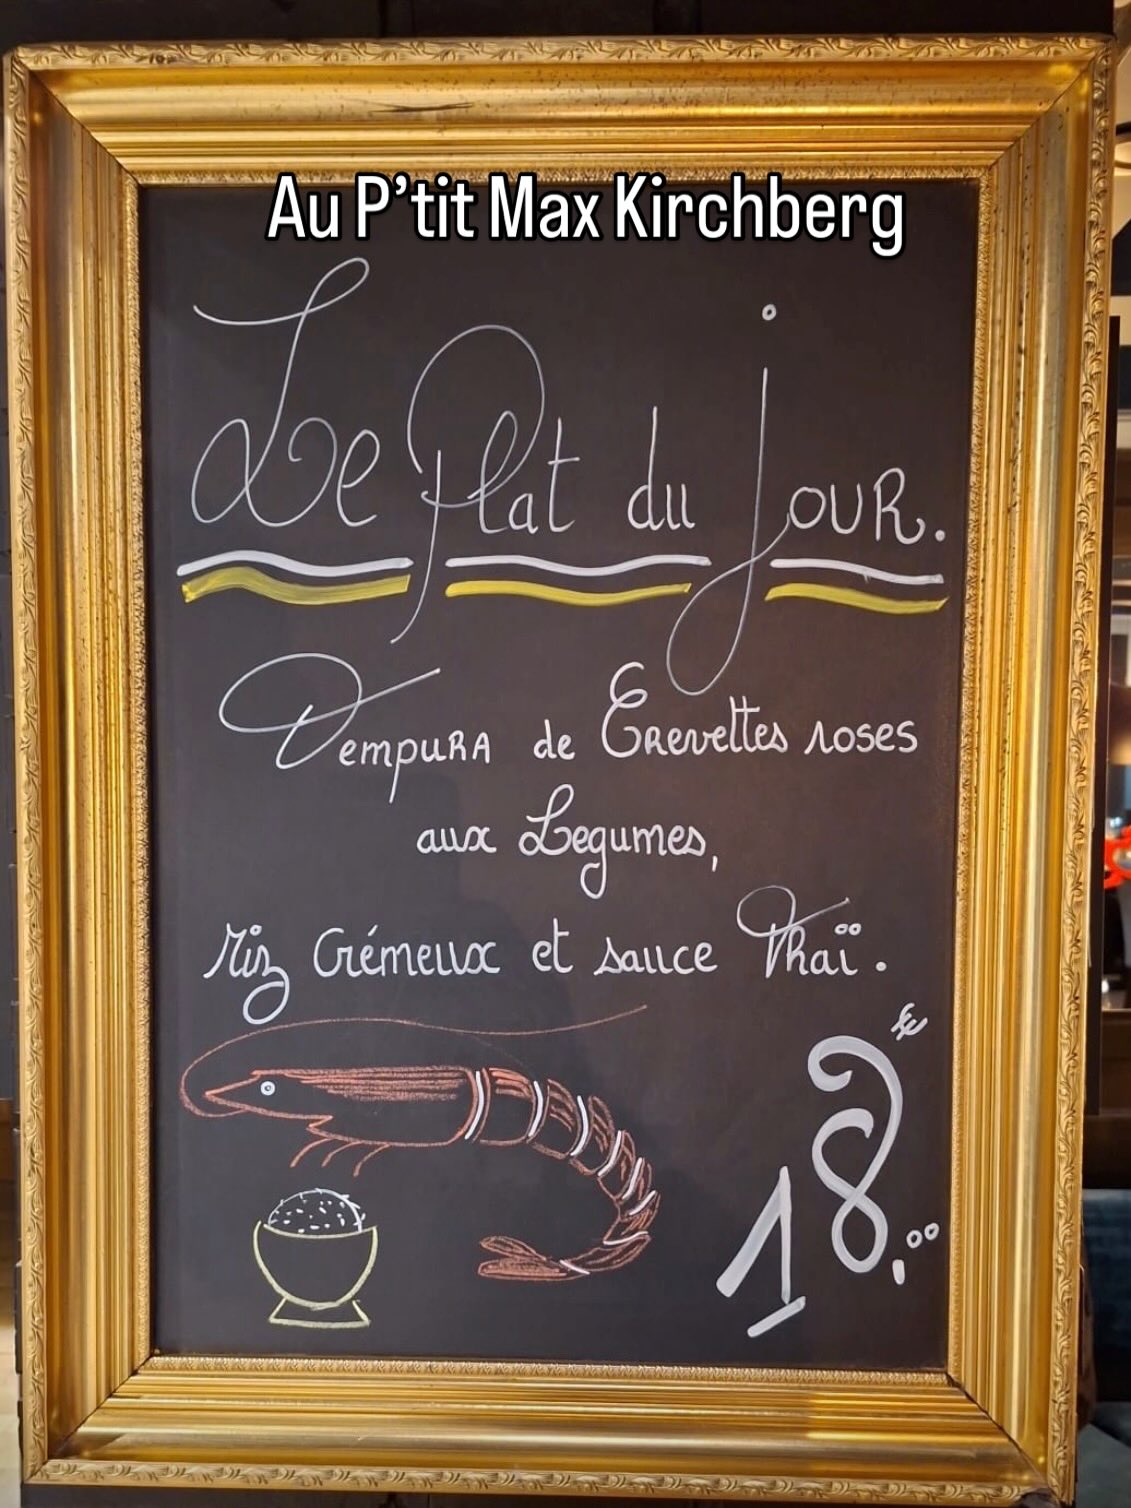 Au P'tit Max Kirchberg
Le Plat du jour.
Tempura de Crevettes roses
aux Legumes,
riz Crémeux et sauce Thaï.
18,00 €